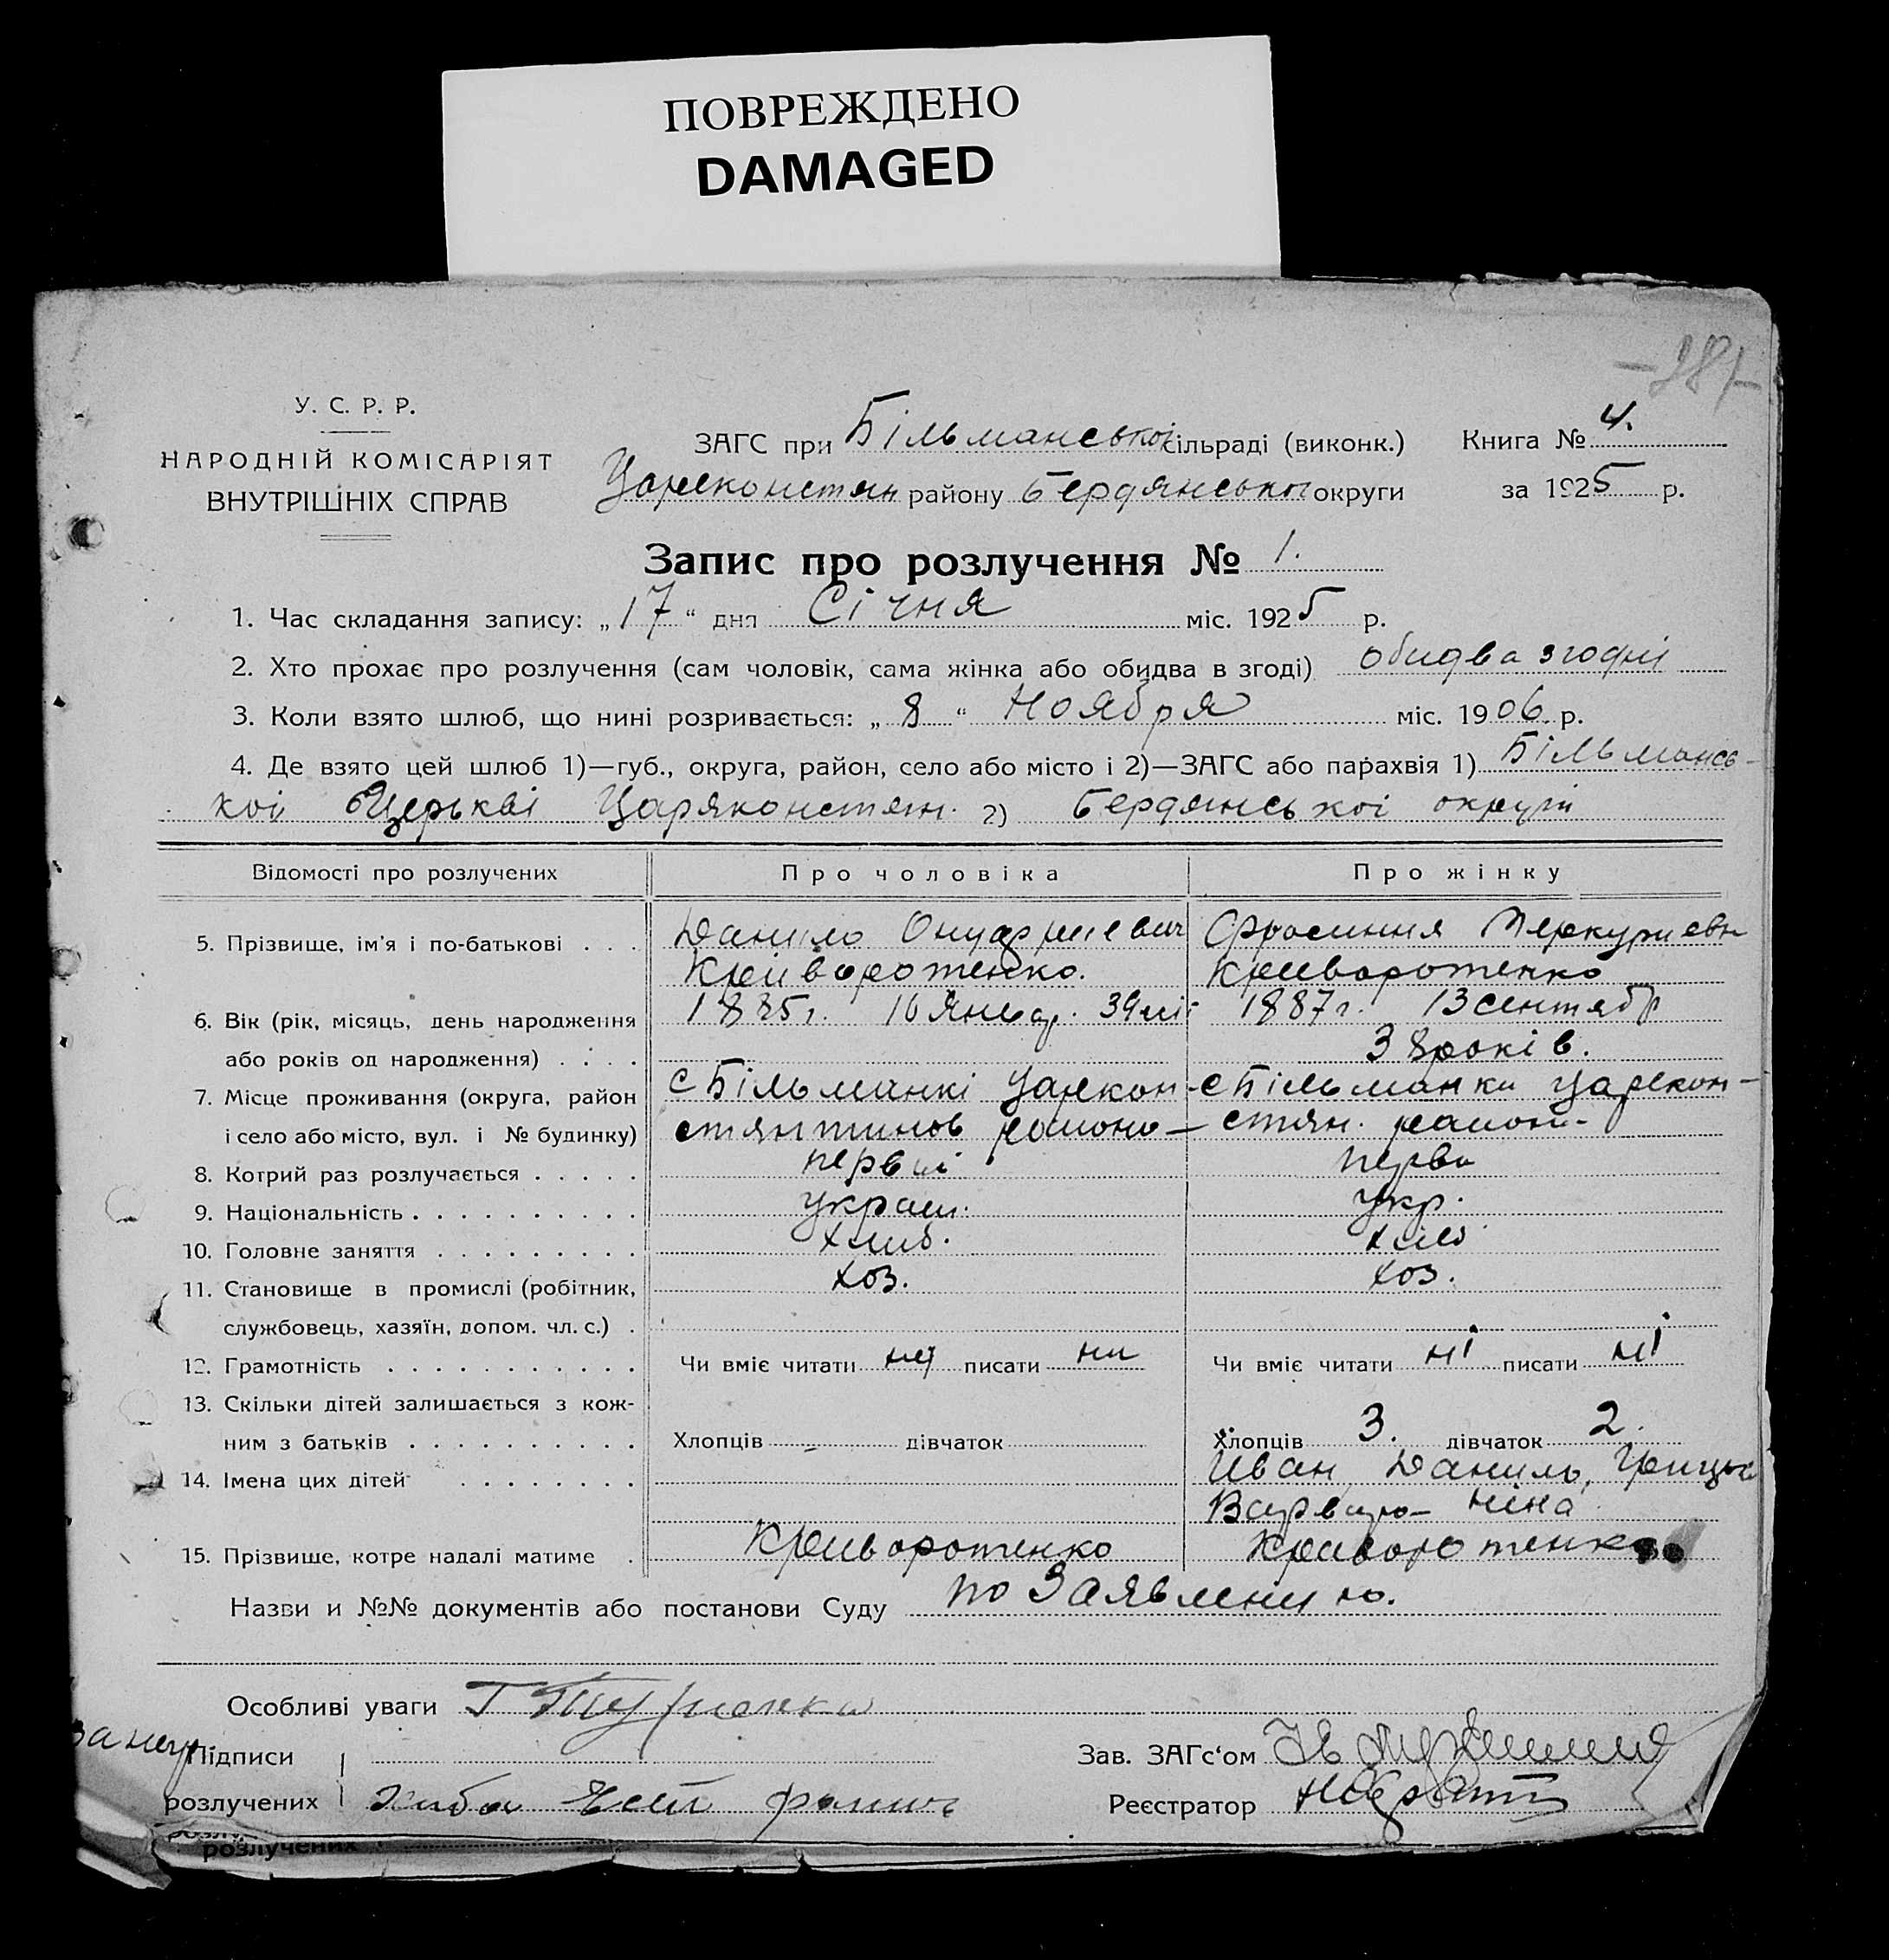 ПОВРЕЖДЕНО
DAMAGED
У. С. Р. Р.
НАРОДНІЙ КОМІСАРІЯТ
ВНУТРІШНІХ СПРАВ
ЗАГС при Більманської сільраді (виконк.) Книга № 4.
Цареконстян району Бердянської округи за 1925 р.
Запис про розлучення № 1.
1. Час складання запису: „17“ дня Січня міс. 1925 р.
2. Хто прохає про розлучення (сам чоловік, сама жінка або обидва в згоді) обидва згодні
3. Коли взято шлюб, що нині розривається: „8“ Ноября міс. 1906. р.
4. Де взято цей шлюб 1)—губ., округа, район, село або місто і 2)—ЗАГС або парахвія 1) Більмансь-
кої Церькві Царяконстян. 2) Бердянської округи
Відомості про розлучених Про чоловіка Про жінку
5. Прізвище, ім'я і по-батькові . . . Данило Онуфриевич Фросиння Меркуриевн
Криворотенко. Криворотенко
6. Вік (рік, місяць, день народження 1885г. 16 Январ. 39 1887г. 13 сентябр
або років од народження) . . . . 38 років.
7. Місце проживання (округа, район с Більманкі Царекон- с Більманки Царекон-
і село або місто, вул. і № будинку) стянтинов району— стян. район-
8. Котрий раз розлучається . . . . . перві перви
9. Національність . . . . . . . . . . украи. укр.
10. Головне заняття . . . . . . . . . хліб. хліб
11. Становище в промислі (робітник, хоз. хоз.
службовець, хазяїн, допом. чл. с.) .
12. Грамотність . . . . . . . . . . . Чи вміє читати писати ни Чи вміє читати ні писати ні
13. Скільки дітей залишається з кож-
ним з батьків . . . . . . . . . . Хлопців - дівчаток Хлопців 3. дівчаток 2.
14. Імена цих дітей . . . . . . . Иван, Даниль, Грицьк
Варвара— Ніна
15. Прізвище, котре надалі матиме . Криворотенко Криворотенко
Назви и №№ документів або постанови Суду по Заявлению.
Особливі уваги Г
Підписи Зав. ЗАГс‘ом
розлучених Реєстратор
розлучених